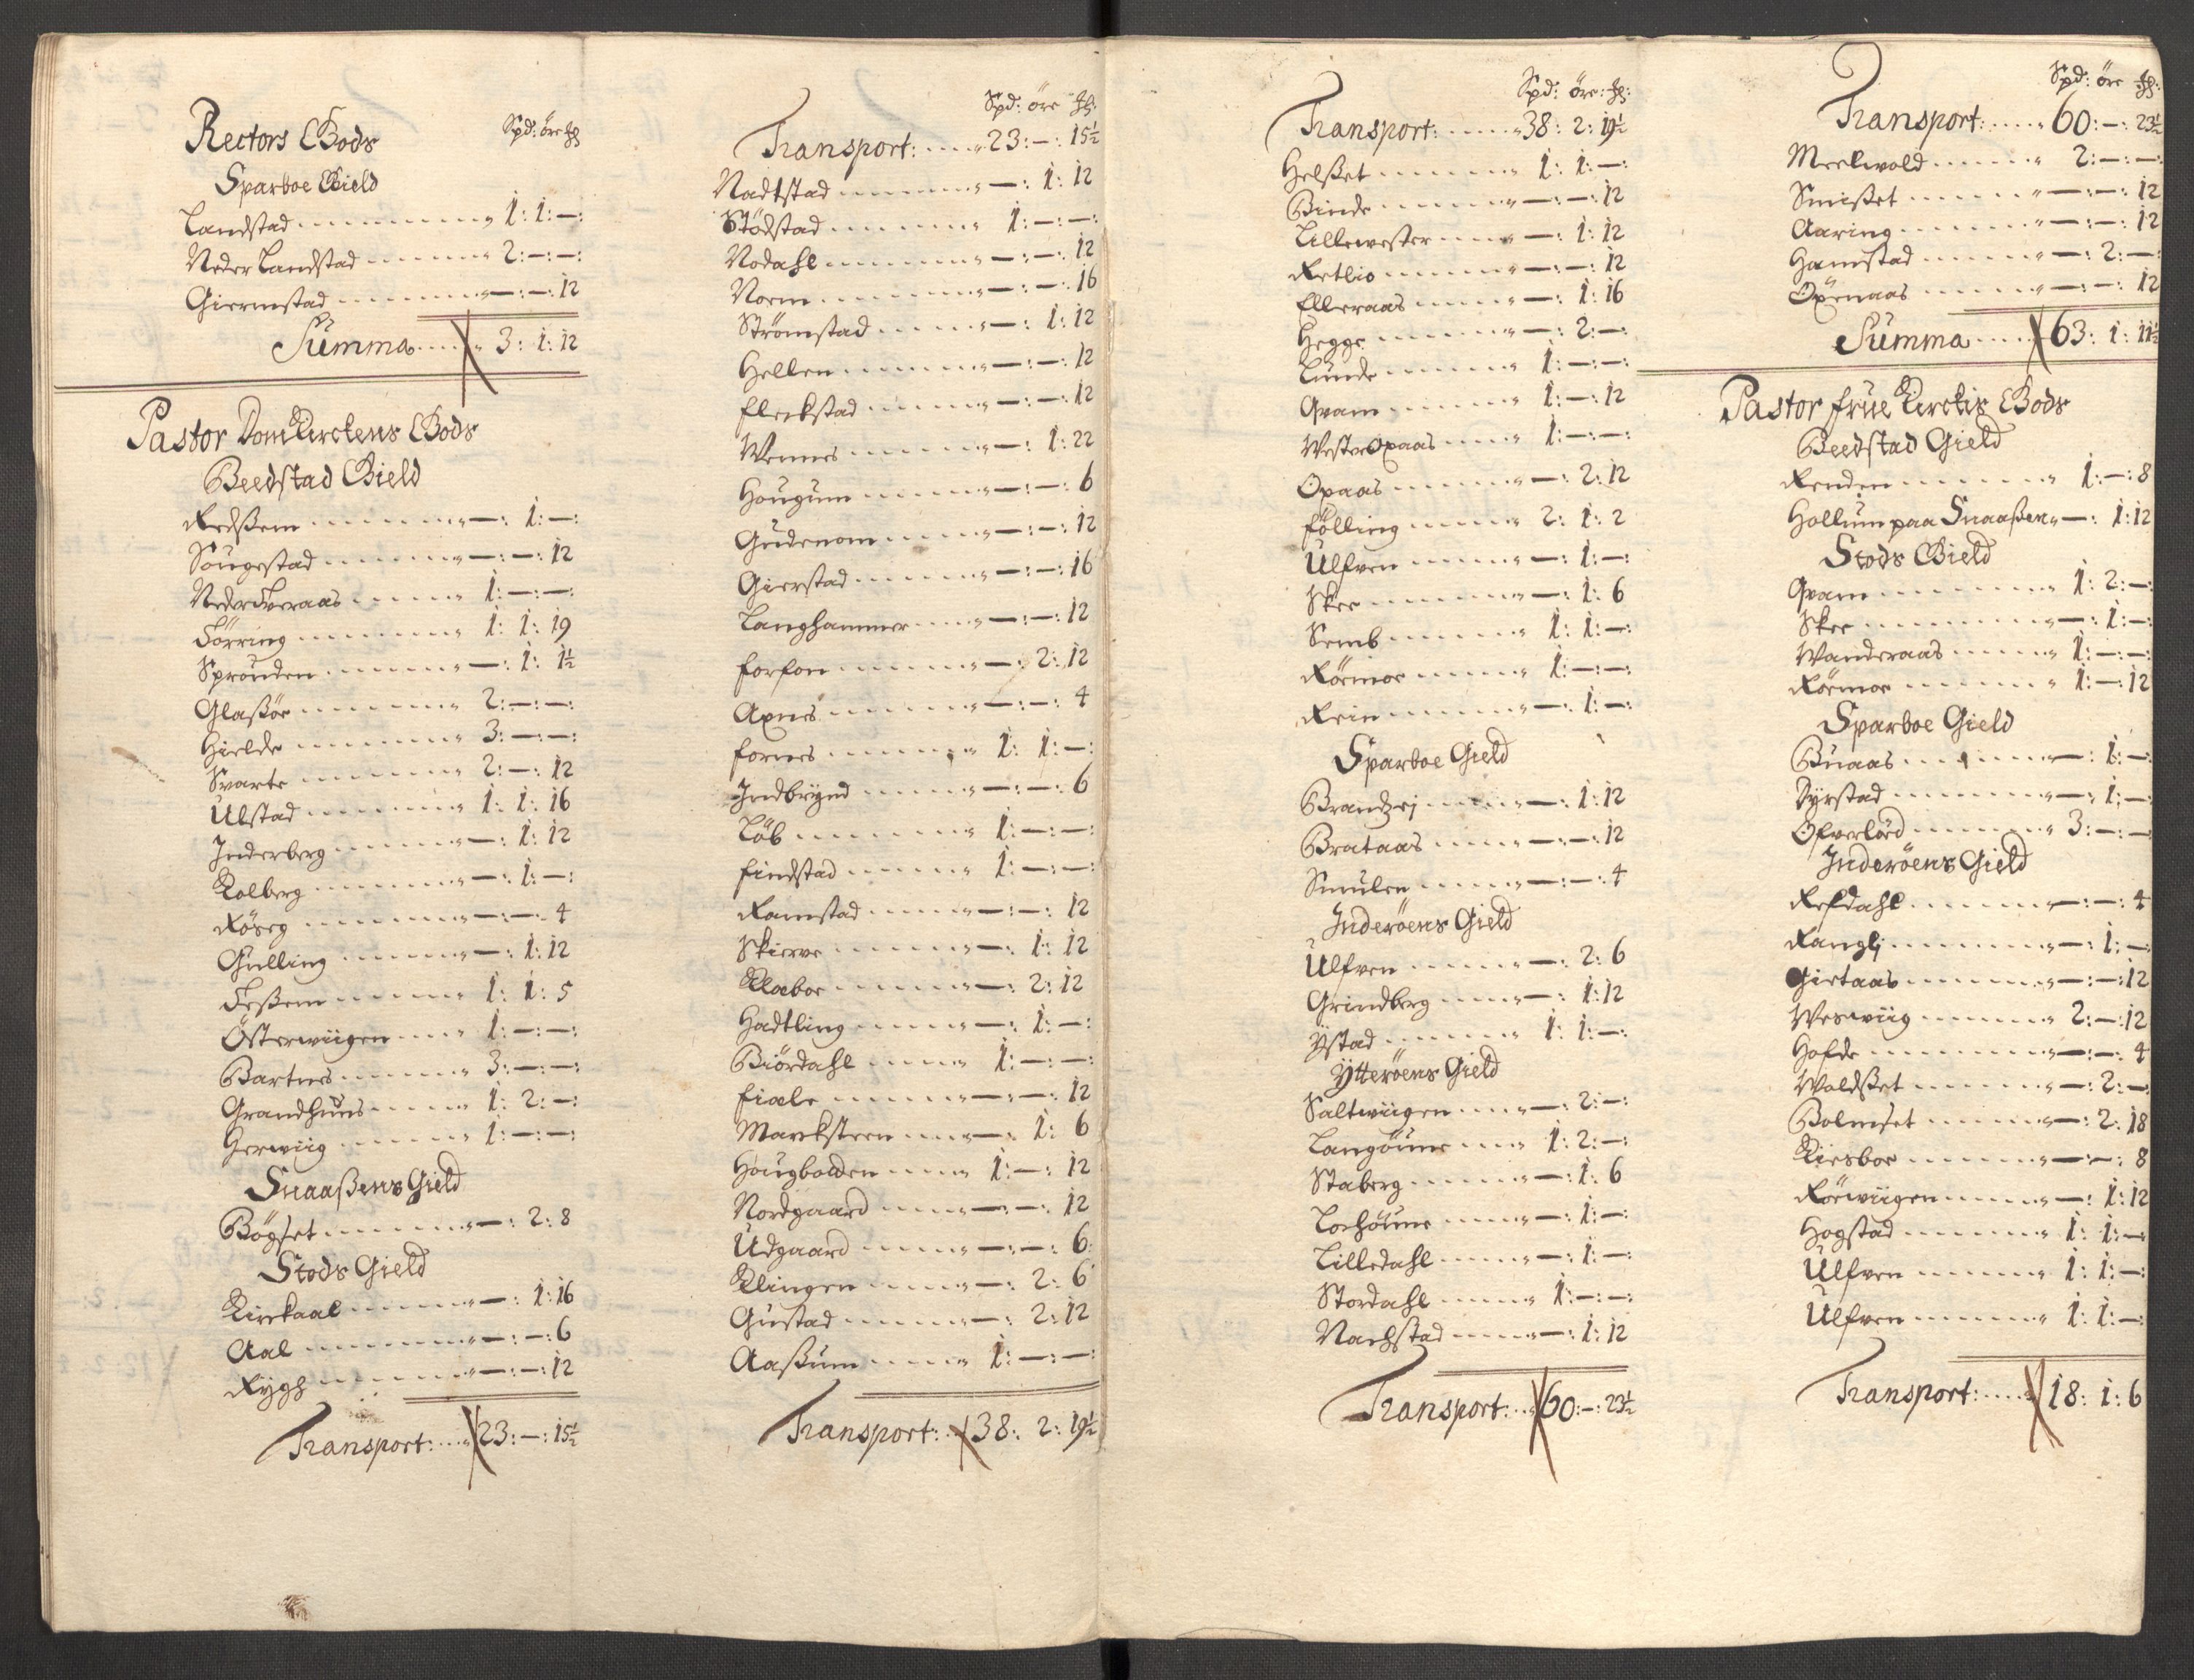 Rectors Gods Spd: öre ₰
Sparboe Gield
Landstad 1: 1: —:
Neder Landstad 2: —: —:
Giermstad —: —: 12
Summa 3: 1: 12
Pastor Domkirckens Gods
Beedstad Gield
Redsßem —: 1: —:
Sougestad —: —: 12
Neder Tveraas 1: —: —:
Törring 1: 1: 19
Sprouden —: 1: 1½
Glaßöe 2: —: —:
Hielde 3: —: —:
Svarte 2: —: 12
Ulstad 1: 1: 16
Inderberg —: 1: 12
Kolberg —: 1: —:
Röseg —: —: 4
Gulling —: 1: 12
Teßem 1: 1: 5
Österwiigen 1: —: —:
Bartnes 3: —: —:
Grandhuus 1: 2: —:
Herwiig 1: —: —:
Snaaßens Gield
Bögset —: 2: 8
Stods Gield
Kirkaal —: 1: 16
Aal —: —: 6
Rygh —: —: 12
Transport: 23: —: 15½
Spd: öre ₰:
Transport: 23: —: 15½
Nadtstad —: 1: 12
Stödstad 1: —: —:
Nodahl —: —: 12
Noem —: —: 16
Strömstad —: 1: 12
Hellem —: —: 12
Fleckstad —: —: 12
Wennes —: 1: 22
Hougum —: —: 6
Gudenom —: —: 12
Gierstad —: —: 16
Langhammer —: —: 12
Forfon —: 2: 12
Axnes —: —: 4
Fornes 1: 1: —:
Indbrynd —: —: 6
Löb 1: —: —:
Findstad 1: —: —:
Ramstad —: —: 12
Skierve —: 1: 12
Klaboe —: 2: 12
Hadtling —: 1: —:
Biördahl 1: —: —:
Fiale —: —: 12
Marksteen —: 1: 6
Hougbolden 1: —: 12
Nordgaard —: —: 12
Udgaard —: —: 6:
Klingen —: 2: 6
Gustad —: 2: 12
Aaßum 1: —: —:
Transport: 38: 2: 19½
Spd: öre: ₰:
Transport: 38: 2: 19½
Helßet 1: 1: —:
Binde —: —: 12
Lillewester —: 1: 12
Retlio —: —: 12
Elleraas —: 1: 16
Hegge —: 2: —:
Lunde 1: —: —:
Qvam 1: —: 12
Wester Opaas 1: —: —:
Opaas —: 2: 12
Fölling 2: 1: 2
Ulfven —: 1: —:
Skee —: 1: 6
Semb 1: 1: —:
Röemoe 1: —: —:
Rein —: 1: —:
Sparboe Gield
Brandzej —: 1: 12
Brataas —: —: 12
Smulen —: —: 4
Inderöens Gield
Ulfven —: 2: 6
Grindberg —: 1: 12
Ystad 1: 1: —:
Ytteröens Gield
Saltwiigen —: 2: —:
Langöune 1: 2: —:
Staberg —: 1: 6
Lochöune —: 1: —:
Lilledahl —: 1: —:
Stordahl 1: —: —:
Nachstad —: 1: 12
Transport: 60: —: 23½
Spd: öre ₰:
Transport: 60: —: 23½
Meelwold 2: —: —:
Smißet —: —: 12
Aaring —: —: 12
Hamstad —: 2: —:
Oxenaas —: —: 12
Summa 63: 1: 11½
Pastor Frue Kirckis Gods
Beedstad Gield
Renden 1: —: 8
Hollum paa Snaaßen —: 1: 12
Stods Gield
Qvam 1: 2: —:
Skee —: 1: —:
Wanderaas 1: —: —:
Röemoe 1: —: 12
Sparboe Gield
Buaas —: 1: —:
Dyrstad —: 1: —:
Ofverlöed 3: —: —
Inderöens Gield
Refdahl —: —: 4
Ranglj —: 1: —:
Gietaas —: —: 12
Weswiig 2: —: 12
Hofde —: —: 4
Woldßet —: 2: —:
Bolmset —: 2: 18
Kiesboe —: —: 8
Röewiigen —: 1: 12
Hogstad 1: 1: —:
Ulfven 1: 1: —:
Ulfven 1: 1: —:
Transport: 18: 1: 6